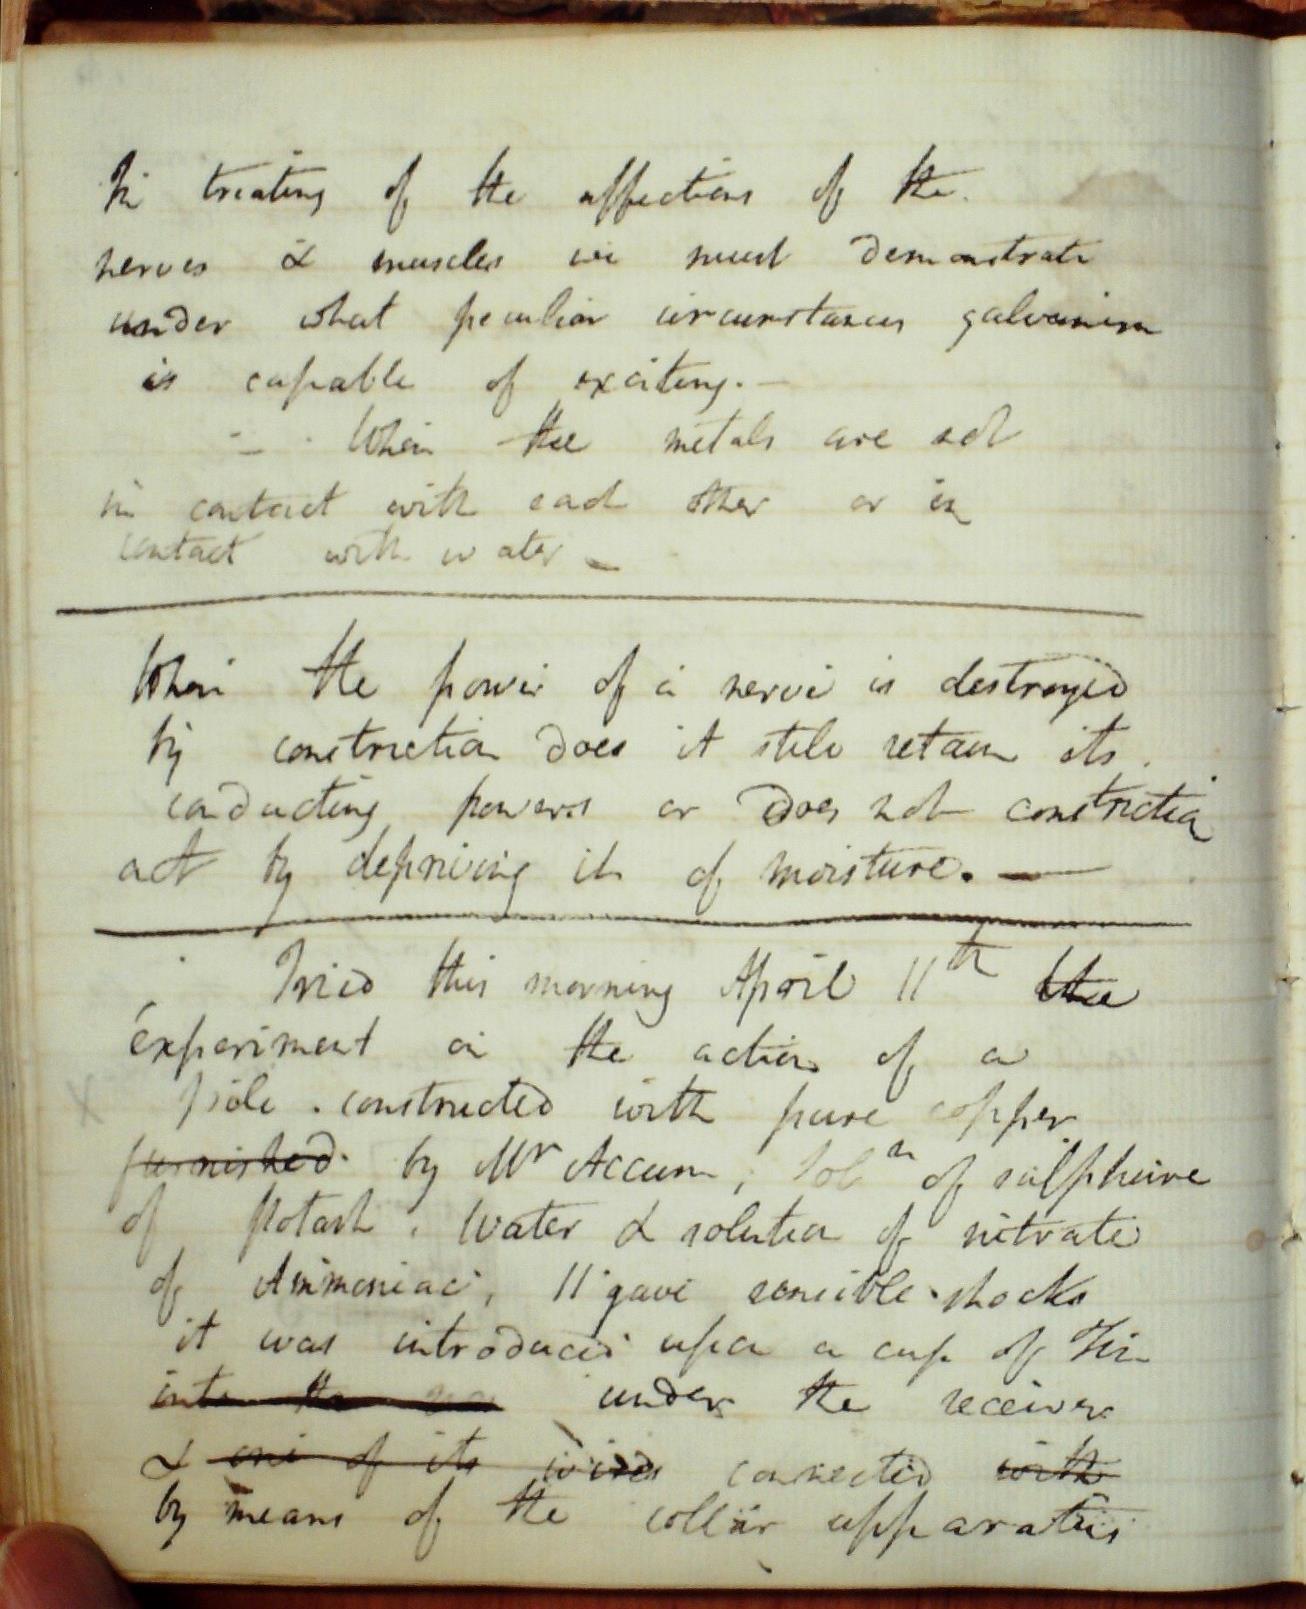 In treating of the affections of the
nerves & muscles we must demonstrate
under what peculiar circumstances galvanism
is capable of exciting. —
When the metals are not
in contact with each other or in
contact with water —
When the power of a nerve is destroyed
by constriction does it still retain its
conducting powers or does not constriction
act by depriving it of moisture. —
Tried this morning April 11th the
experiment on the action of a
pile constructed with pure copper
furnished by Mr Accum, Soln of sulphure
of Potash. Water & solution of nitrate
of Ammoniac, 11 gave sensible shocks
it was introduced upon a cup of Tin
into the under the receiver
& one of its wires connected with
by means of the collar apparatus